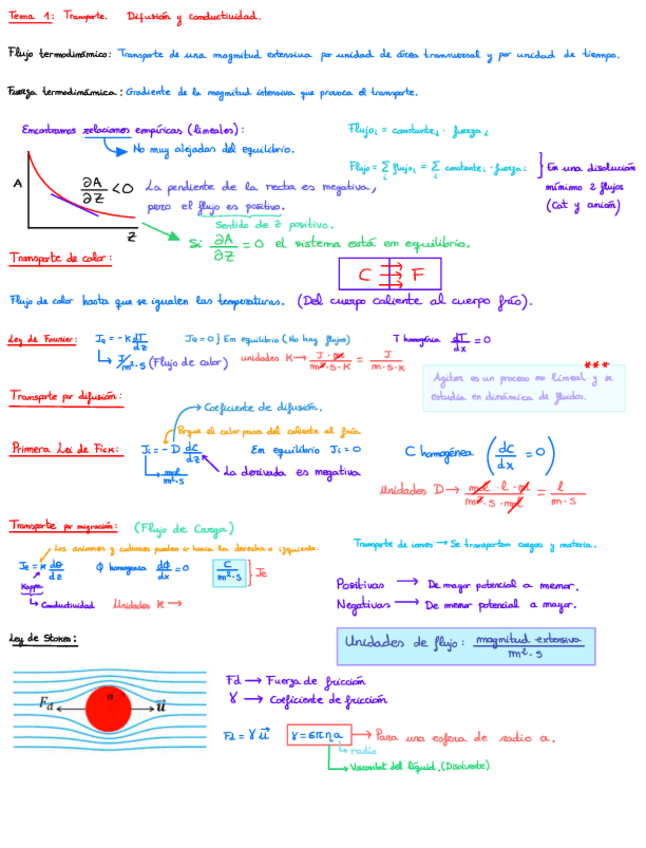 Tema 1: Transporte. Difusión y conductividad.
Flujo termodinámico: Transporte de una magnitud extensiva por unidad de área transversal y por unidad de tiempo.
Fuerza termodinámica: Gradiente de la magnitud intensiva que provoca el transporte.
Encontramos relaciones empíricas (lineales):
No muy alejadas del equilibrio.
Flujo i = constante i · fuerza i
Flujo = Σ i flujo i = Σ i constante i · fuerza i
En una disolución
mínimo 2 flujos
(Cat y anión)
A
∂A/∂Z < 0
Z
La pendiente de la recta es negativa,
pero el flujo es positivo.
Sentido de z positivo.
Si ∂A/∂Z = 0 el sistema está em equilibrio.
Transporte de calor:
C F
Flujo de calor hasta que se igualen las temperaturas. (Del cuerpo caliente al cuerpo frío).
Ley de Fourier: Jq = -K dT/dz
Jq = 0 } Em equilibrio (No hay flujos)
T homogénia dT/dx = 0
J/m²·s (Flujo de calor)
unidades K → J·m/m²·s·K = J/m·s·K
***
Agitar es un proceso no lineal y se
estudia en dinámica de fluidos.
Transporte por difusión:
Coeficiente de difusión.
Porque el calor pasa del caliente al frío.
Primera Lei de Fick: Ji = -D dC/dz
Em equilibrio Ji = 0
C homogénea (dC/dx = 0)
mol/m²·s
La derivada es negativa
Unidades D → mol·l·m/m²·s·mol = l/m·s
Transporte por migración: (Flujo de Carga)
Los aniones y cationes pueden ir hacia la derecha o izquierda.
Je = κ dΦ/dz
Φ homogenea dΦ/dx = 0
C/m²·s } Je
Kappa
Conductividad
Unidades K →
Transporte de iones → Se transportan cargas y materia.
Positivas → De mayor potencial a menor.
Negativas → De menor potencial a mayor.
Unidades de flujo: magnitud extensiva/m²·s
Ley de Stokes:
Fd a u
Fd → Fuerza de fricción
γ → Coeficiente de fricción
Fd = γ u
γ = 6πηa → Para una esfera de radio a.
radio
Viscositat del líquid. (Disolvente)